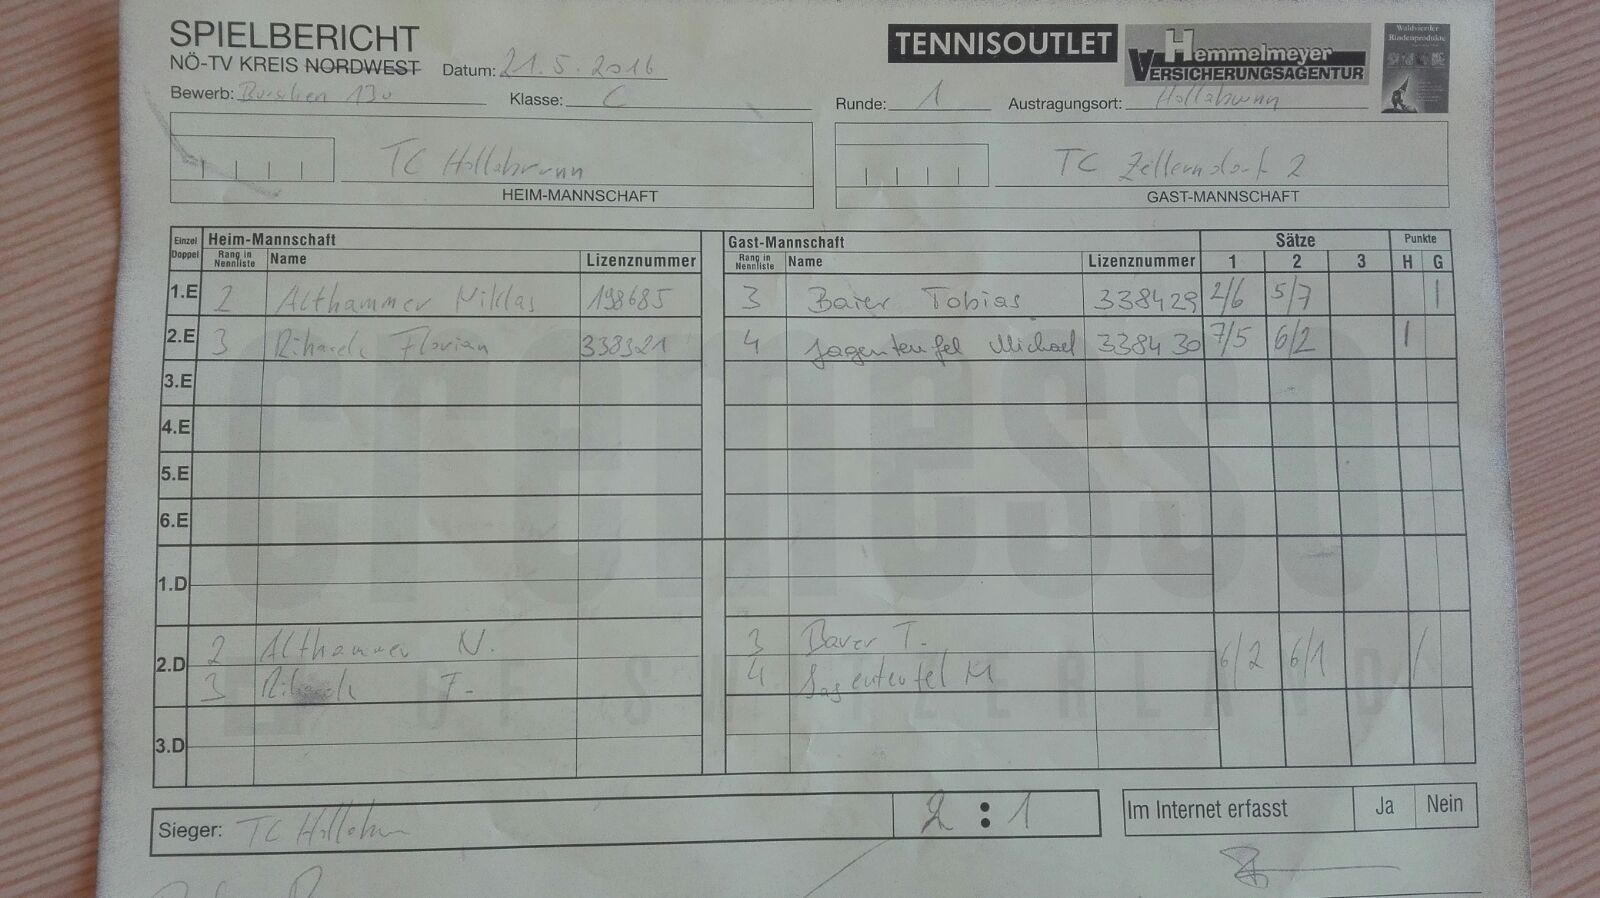 SPIELBERICHT
NÖ-TV KREIS NORDWEST Datum: 21.5.2016
TENNISOUTLET
Hemmelmeyer
VERSICHERUNGSAGENTUR
Waldviertler
Rindenprodukte
Bewerb: Burschen 13u Klasse: C Runde: 1 Austragungsort: Hollabrunn
TC Hollabrunn
HEIM-MANNSCHAFT
TC Zellerndorf 2
GAST-MANNSCHAFT
Einzel Doppel Heim-Mannschaft Gast-Mannschaft Sätze Punkte
Rang in Nennliste Name Lizenznummer Rang in Nennliste Name Lizenznummer 1 2 3 H G
1.E 2 Althammer Niklas 198685 3 Baier Tobias 338429 2/6 5/7 1
2.E 3 Florian 338321 4 Jagenteufel Michael 338430 7/5 6/2 1
3.E
4.E
5.E
6.E
1.D
2.D 2 Althammer N. 3 T. 6/2 6/1 /
3 F. 4 Jagenteufel M
3.D
cremesso
OF SWITZERLAND
Sieger: TC 2 : 1
Im Internet erfasst Ja Nein